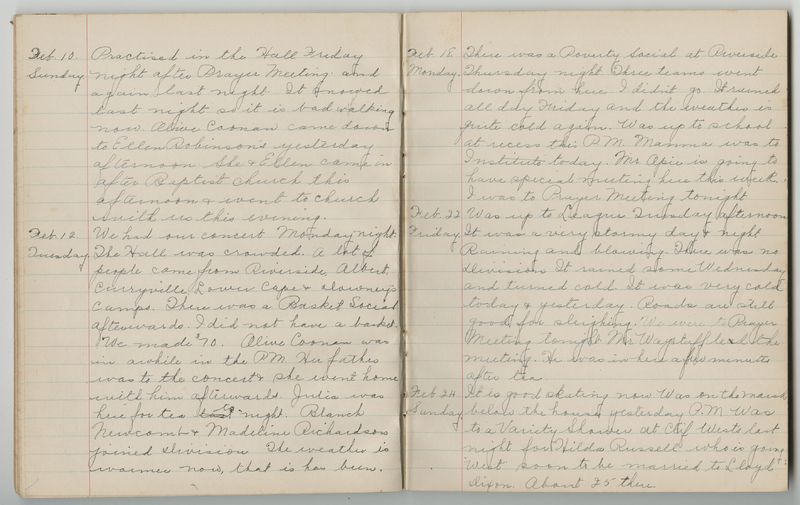 Feb. 10. Practised in the Hall Friday
Sunday night after Prayer Meeting and
again last night. It snowed
last night so it is bad walking
now. Olive Coonan came down
to Ellen Robinson's yesterday
afternoon. She & Ellen came in
after Baptist church this
afternoon & went to church
with us this evening.
Feb. 12. We had our concert Monday night.
Tuesday The Hall was crowded. A lot of
people came from Riverside, Albert,
Curryville, Lower Cape & Downey's
Camps. There was a Basket Social
afterwards. I did not have a basket.
We made 70. Olive Coonan was
in awhile in the P.M. Her father
was to the concert & she went home
with him afterwards. Julia was
here for tea last night. Blanch
Newcomb & Madeline Richardson
joined Division. The weather is
warmer now, that is has been.
Feb. 18 There was a Poverty Social at Riverside
Monday. Thursday night. Three teams went
down from here I didn't go. It rained
all day Friday and the weather is
quite cold again. Was up to school
at recess this P.M. Mamma was to
Institute today. Mr. is going to
have special meeting here this week.
I was to Prayer Meeting tonight
Feb. 22 Was up to League Tuesday afternoon
Friday It was a very stormy day & night
Raining and blowing. There was no
Division. It rained some Wednesday
and turned cold. It was very cold
today & yesterday. Roads are still
good for sleighing. We were to Prayer
Meeting tonight Mr Wagstaff led the
meeting. He was in here a few minutes
after tea.
Feb. 24 It is good skating now. Was on the marsh
Sunday below the house yesterday P.M. Was
to a Variety Shower at West's last
night for Hilda Russell who is going
West soon to be married to Lloyd
Dixon. About 25 there.